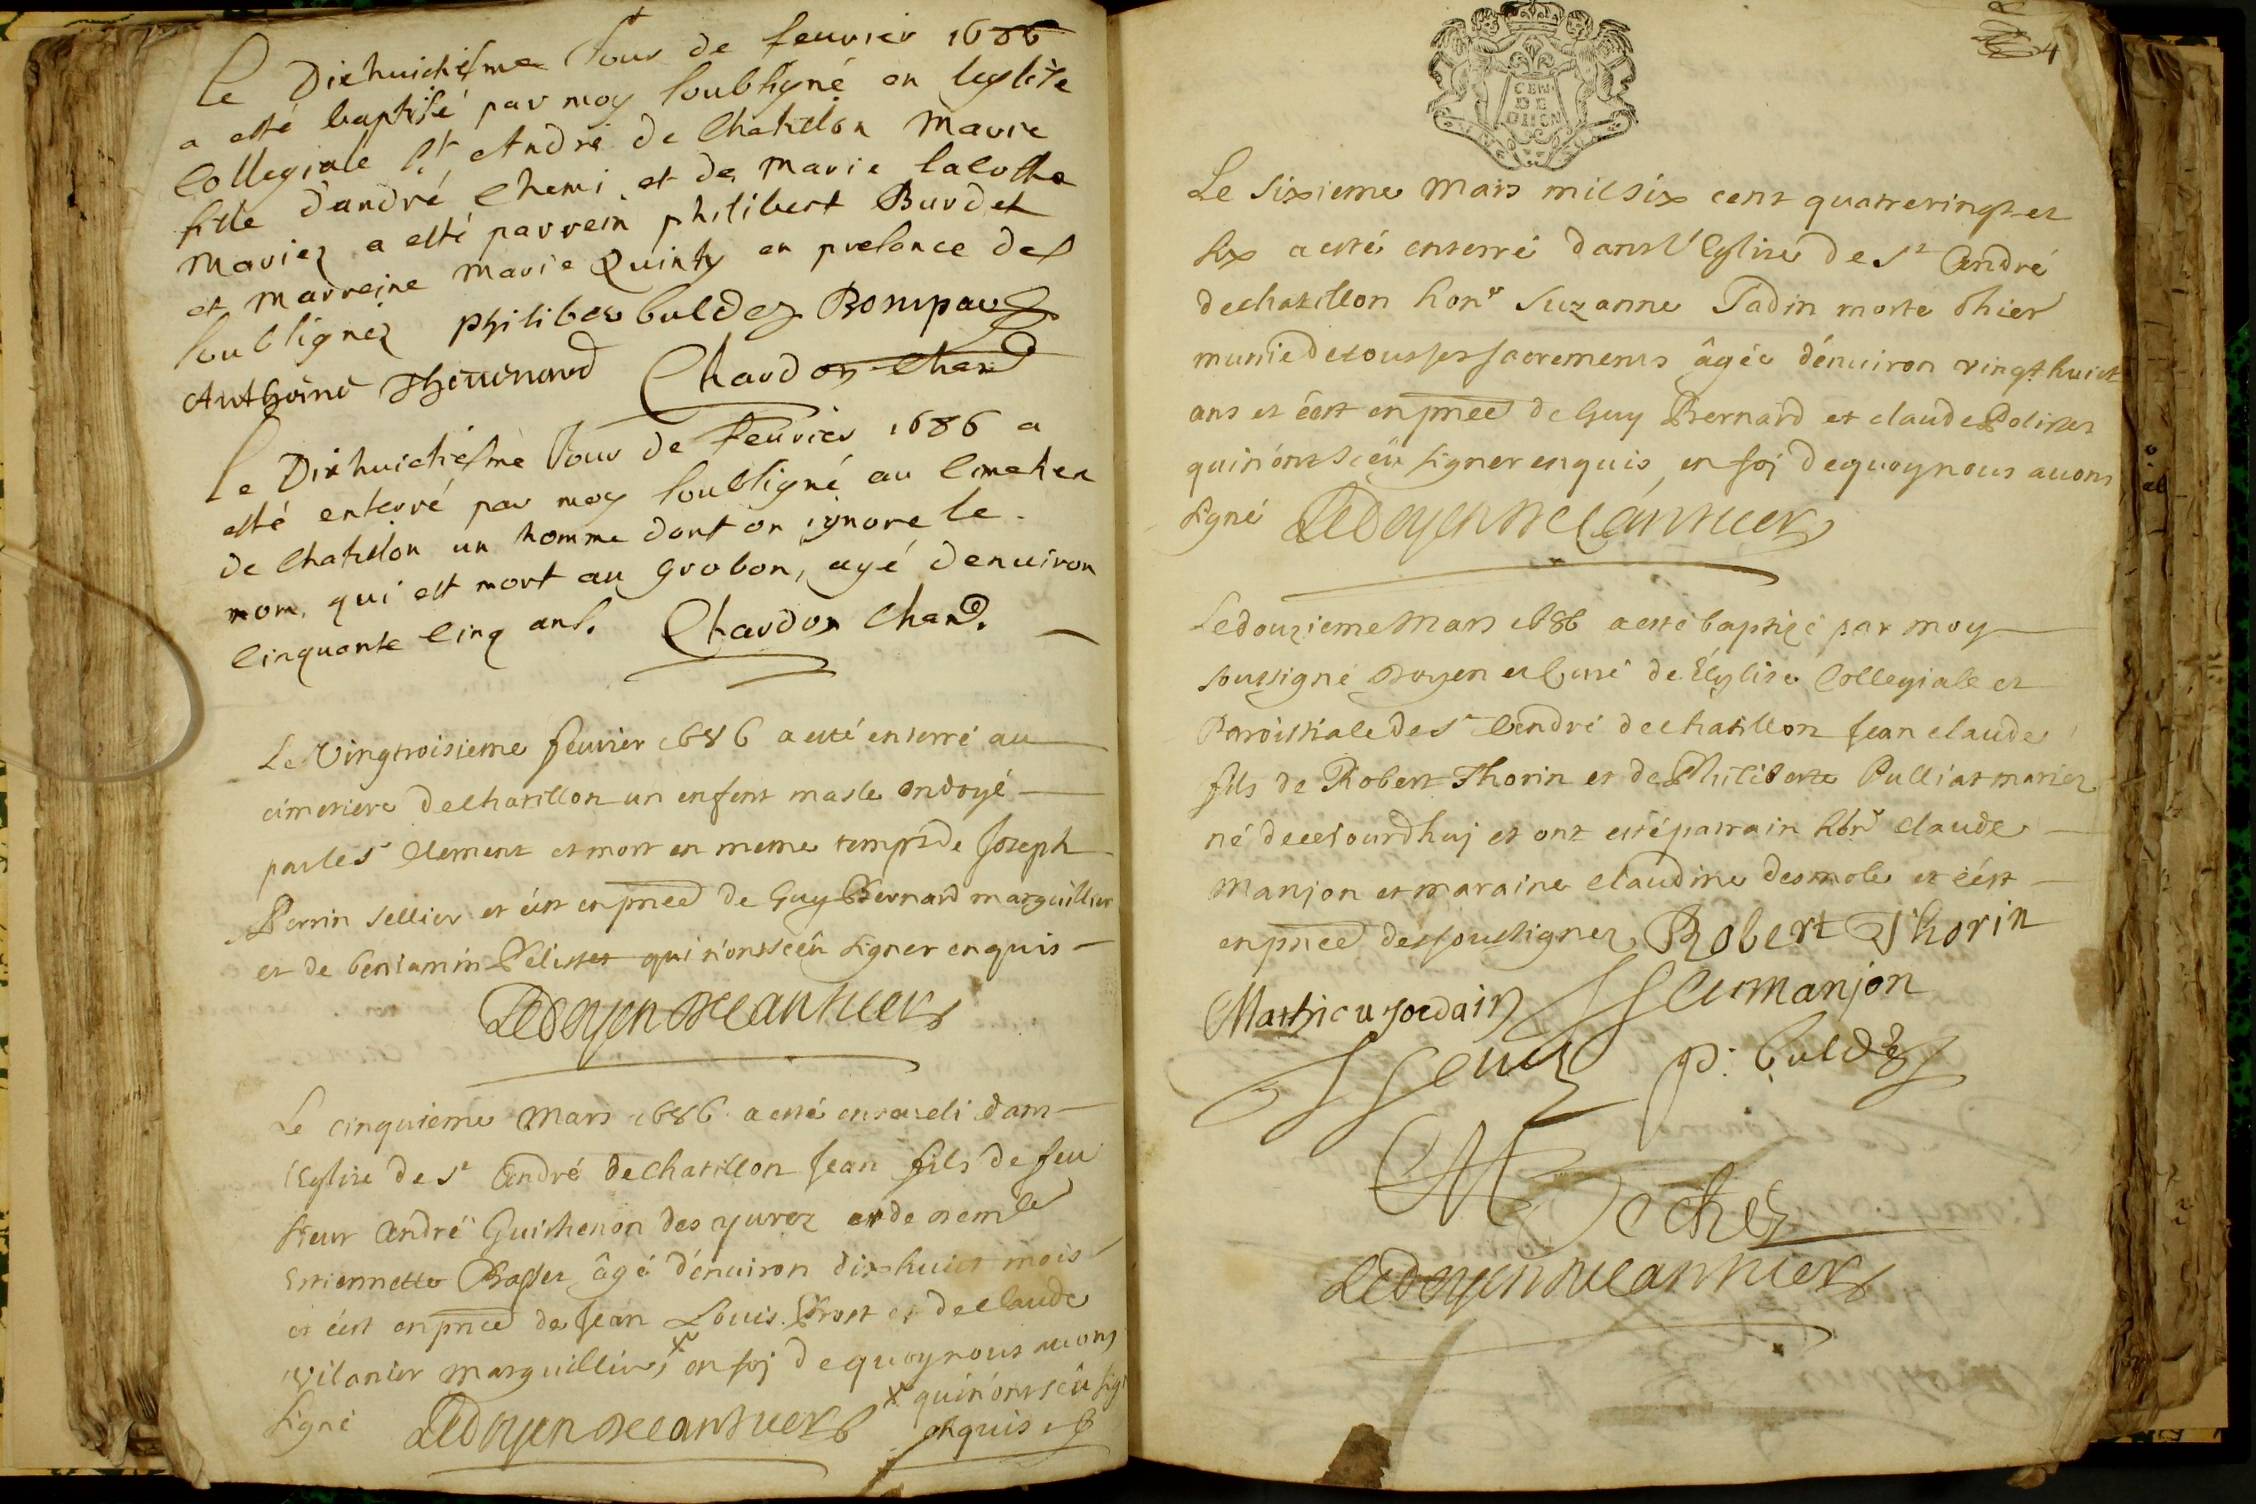 Le Dixhuictiesme Jour de feurier 1686
a esté baptisé par moy soubsigné en leglise
Collegiale St André de Chatillon Marie
fille d'andré Chemi et de Marie lacotte
Mariez a esté parrein philibert Burdet
et Marreine Marie Quinty en presance des
soubsignez philiber buldez Bompar
Anthoine Thevenard Chardon Chan
Le Dixhuictiesme Jour de feurier 1686 a
esté enterré par moy soubsigné au Cimetier
de Chatillon un homme dont on ignore le
nom, qui est mort au grobon, agé denuiron
Cinquante Cinq ans. Chardon Chan.
Le Vingtroisieme feurier 1686 a esté enterré au
cimetiere de chatillon un enfent masle ondoyé
par le sr Clement et mort en meme temps de Joseph
Perrin sellier et c'est en pnce de Guy Bernard marguillier
et de beniamin Pelisset qui n'ont sceû signer enquis
Ledoyen
Le cinquieme Mars 1686 a esté enseueli dans
l'Eglise de St André de chatillon Jean fils de feu
sieur André Guichenon des yurez et de demlle
Estiennette âgé d'enuiron dix huict mois
et c'est en pnce de Jean Louis Prost et de claude
Vilanier marguillier, x en foj de quoy nous auons
signé Ledoyen x qui n'ont sceû sig
enquis
4
GEN
DE
DIION
Le Sixieme Mars mil six cent quatrevingt et
six a esté enterré dans l'Eglise de St André
de chatillon honr Suzanne Tadin morte d'hier
munie de tous ses sacrements âgée d'enuiron vingt huict
ans et c'est en pnce de Guy Bernard et claude Polisset
qui n'ont sceû signer enquis, en foj de quoy nous auons
signé Ledoyen
Le douzieme Mars 1686 a esté baptizé par moy
soussigné Doyen et Curé de l'Eglise Collegiale et
Paroissiale de St André de chatillon Jean claude
fils de Robert Thorin et de Philiberte Pulliat mariez
né de ce jourd'huj et ont esté parrain honr claude
Manjon et maraine claudine desmole et c'est
en pnce des soussignez Robert Thorin
Mathieu jordain manjon
p. buldez
Ledoyen